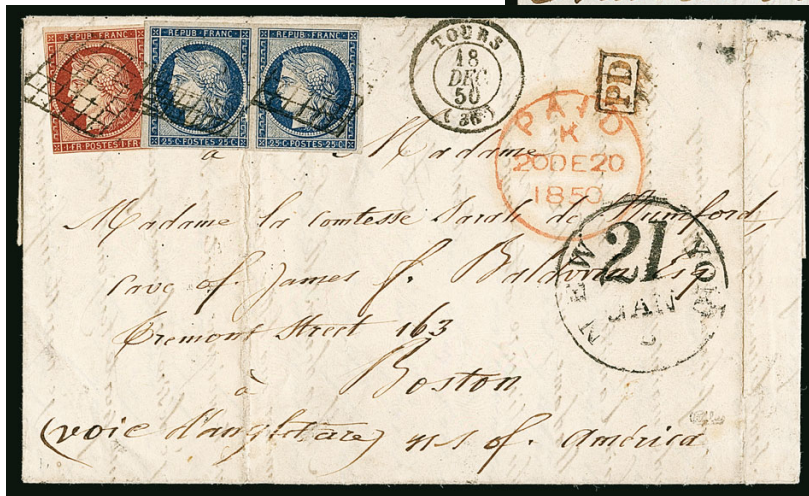 REPUB·FRANC·
REPUB·FRANC·
REPUB·FRANC·
1FR·POSTES·1FR
25·C·POSTES·25·C·
25·C·POSTES·25·C·
TOURS
18
DEC
50
(36)
PD
PAID
K
20DE20
1850
NEW YORK
21
JAN
à Madame
Madame la comtesse Sarah de Rumford,
of James f. Baldwin Esq
Tremont Street 163
à Boston
(voie d'angleterre) of. América